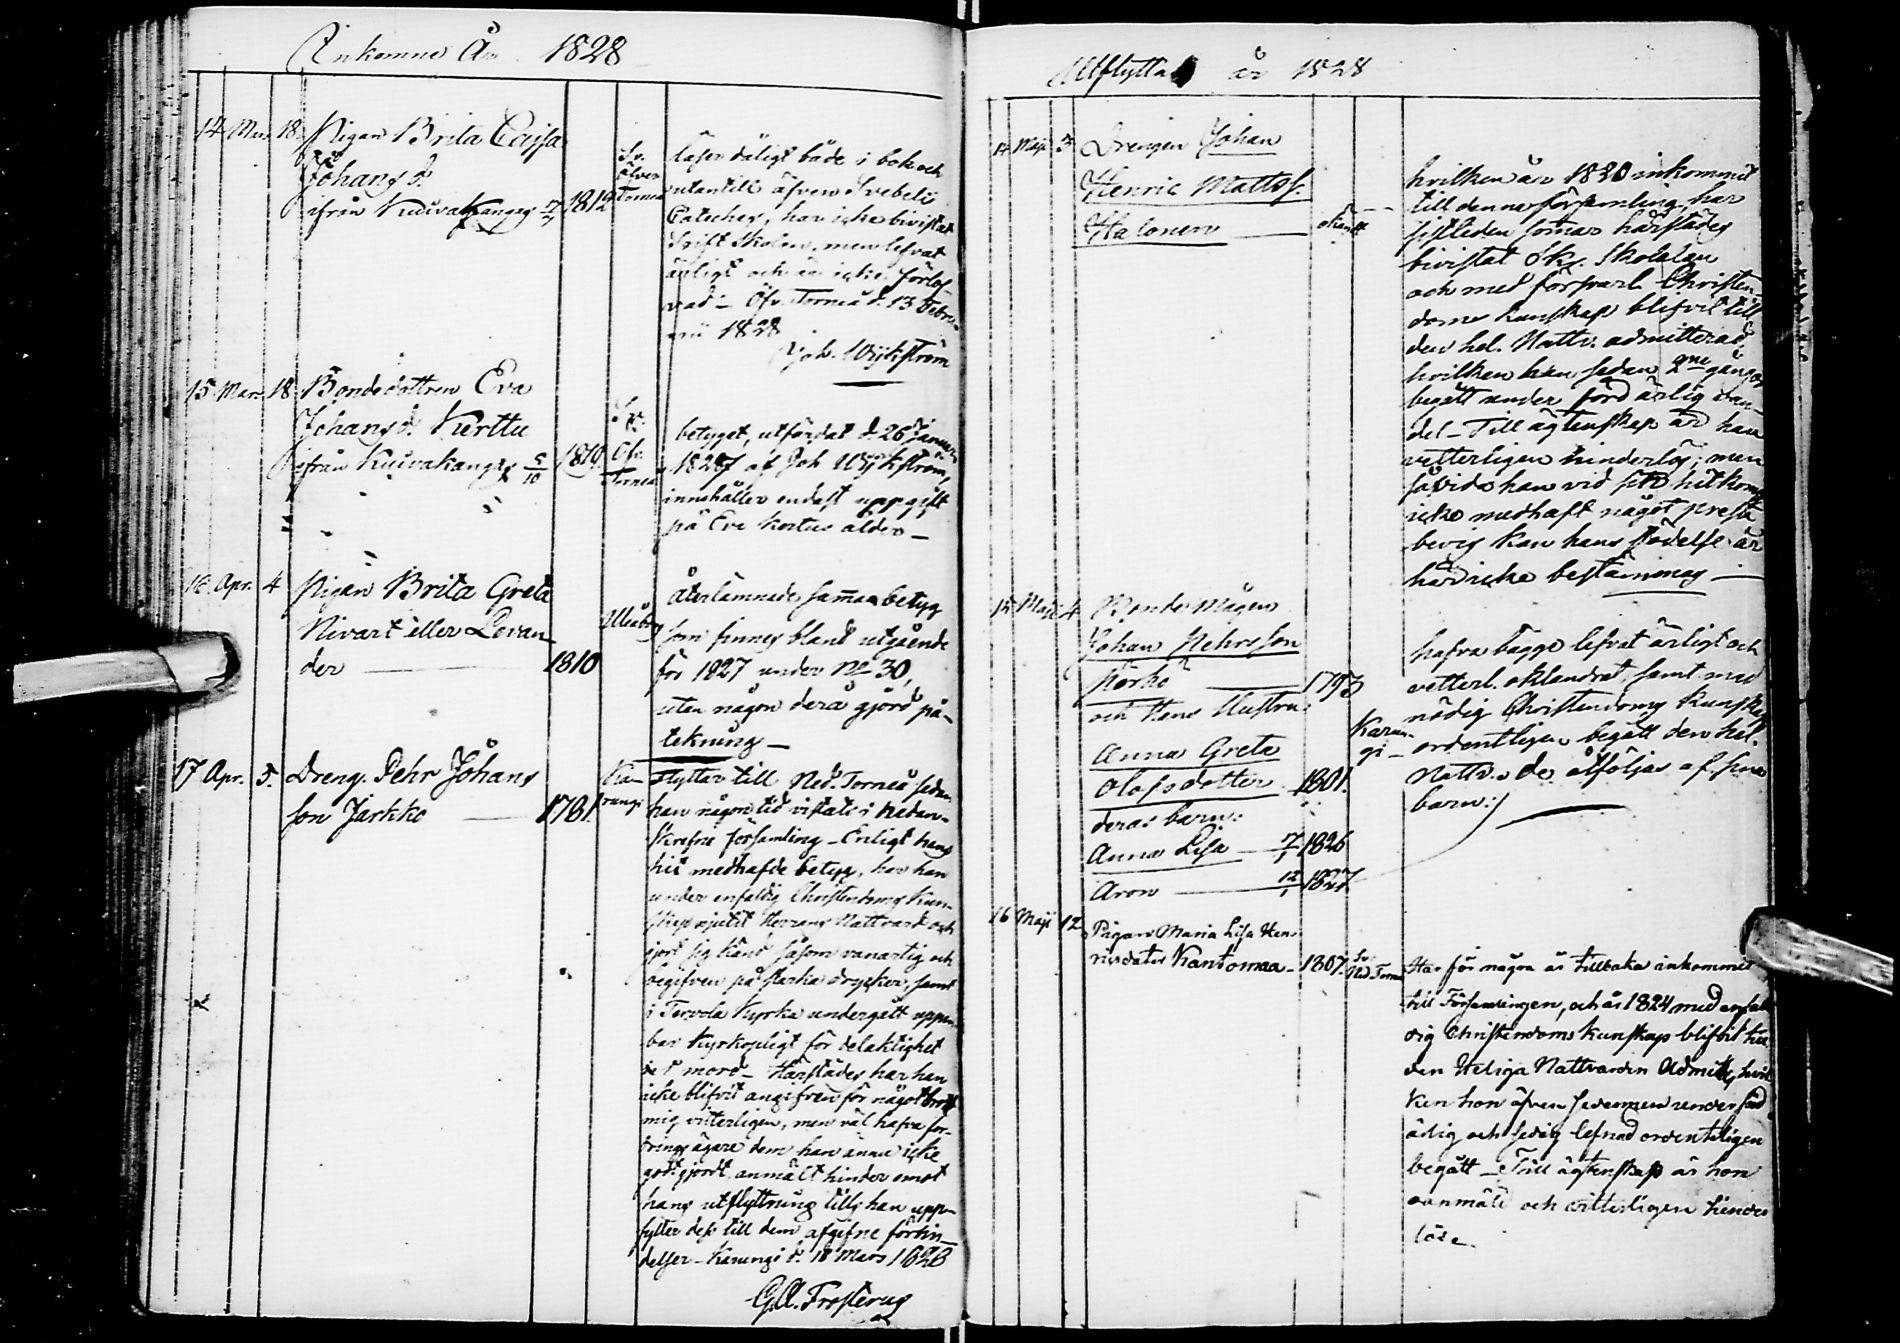 Ankomne År 1828
14 Mars 18. Pigan Brita Cajsa
Johans d.
ifrån Kuivakangas 7/7 1812
Sv.
Öfver
Torneå
läser dåligt både i bok och
utantill äfven Svebelii
Cateches, har icke bivistat
Skrift Skolan, men lefvat
ärligt och är icke förlof-
vad – Öfv. Torneå d. 13 Febru-
arii 1828
Joh. Wijkström
15 Mars 18 Bondedottren Eva
Johans d. Kerttu
ifrån Kuivakangas 5/10 1819
Sv.
Öfv.
Torneå
betyget, utfärdat d. 26 Januarii
1828 af Joh Wijkström,
innehåller endast uppgift
på Eva Kertus ålder –
16 Apr. 4 Pigan Brita Greta
Nivart eller Levan
der 1810
Uleåborg
Återlämnade samma betyg
som finnes bland utgående
för 1827 under No 30,
utan någon derå gjord på-
tekning –
17 Apr. 5. Dreng. Pehr Johans
son Jarkko 1781
Ka-
rungi
flyttar till Ned. Torneå sedan
han någon tid vistats i nedan-
skrefne församling – Enligt hans
hit medhafde betyg, har han
under enfaldig Christendoms Kun-
skap njutit Herrans Nattvard och
gjort sig känd såsom vanartig och
begifven på starka drycker, samt
i Tervola Kyrka undergått uppen-
bar Kyrkopligt för delaktighet
det mord – Härstädes har han
icke blifvit angifven för något brott
mig vitterligen, men väl hafva for-
drings ägare dem han ännu icke
godtgjordt, anmält hinder emot
hans utflyttning tills han upp-
fyller dess till dem afgifne förbin-
delser – Karungi d. 18 Mars 1828
G.A. Frosterus
Utflyttade år 1828
14 Maji 3 Drengen Johan
Henric Mattss.
Halonen
hvilken år 1820 inkommit
till denna församling, har
sistleden somar härstädes
bivistat Sk. Skolelan
och med försvarl. Christen-
doms kunskap blifvit till
den hel. Nattv. admitterad,
hvilken han sedan 2ne gånger
begått under förd ärlig van-
del – Till ägtenskap är han
vetterligen hinderlös; men
såvida han vid sin hitkomst
icke medhaft något prest
bevis kan hans födelse år
här icke bestämmas –
15 Maji 4 Bonde Mågen
Johan Pehrsson
Körkö 1793
och Hans Hustru
Anna Greta
Olofsdotter 1801.
deras barn:
Anna Lisa 7/1 1826
Aron 12/1 1827
Karun-
gi –
hafva bägge lefvat ärligt och
vetterl. oklandrat, samt med
nödig Christendoms kunskap
ordentligen begått den hel.
Nattv. de åtföljas af sina
barn:/
16 Maji 12 Pigan Maria Lisa Hen-
ricsdotter Kantomaa – 1807.
Sv.
Ned Torneå
Har för några år tillbaka inkommit
till Församlingen, och år 1824 med enfal-
dig Christendoms kunskap blifvit till
den Heliga Nattvarden Admitt., hvil-
ken hon äfven sedermera under förd
ärlig och sedig lefnad ordenteligen
begått – Till ägtenskap är hon
oanmält och vitterligen hinder-
lös.